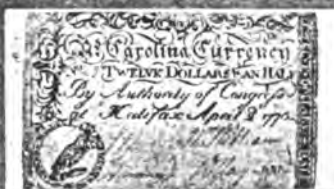 Nº Carolina Currency
TWELVE DOLLARS & AN HALF
By Authority of Congress
at Halifax April 2 1776